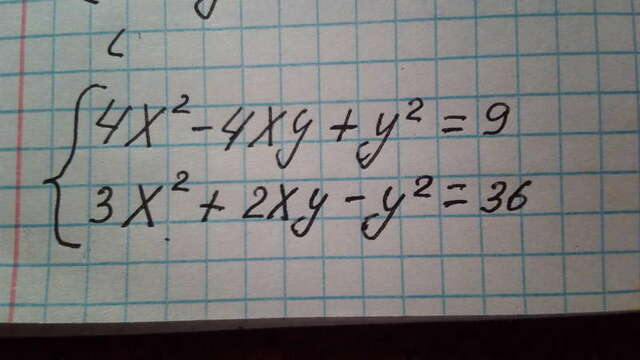 4x² - 4xy + y² = 9
3x² + 2xy - y² = 36